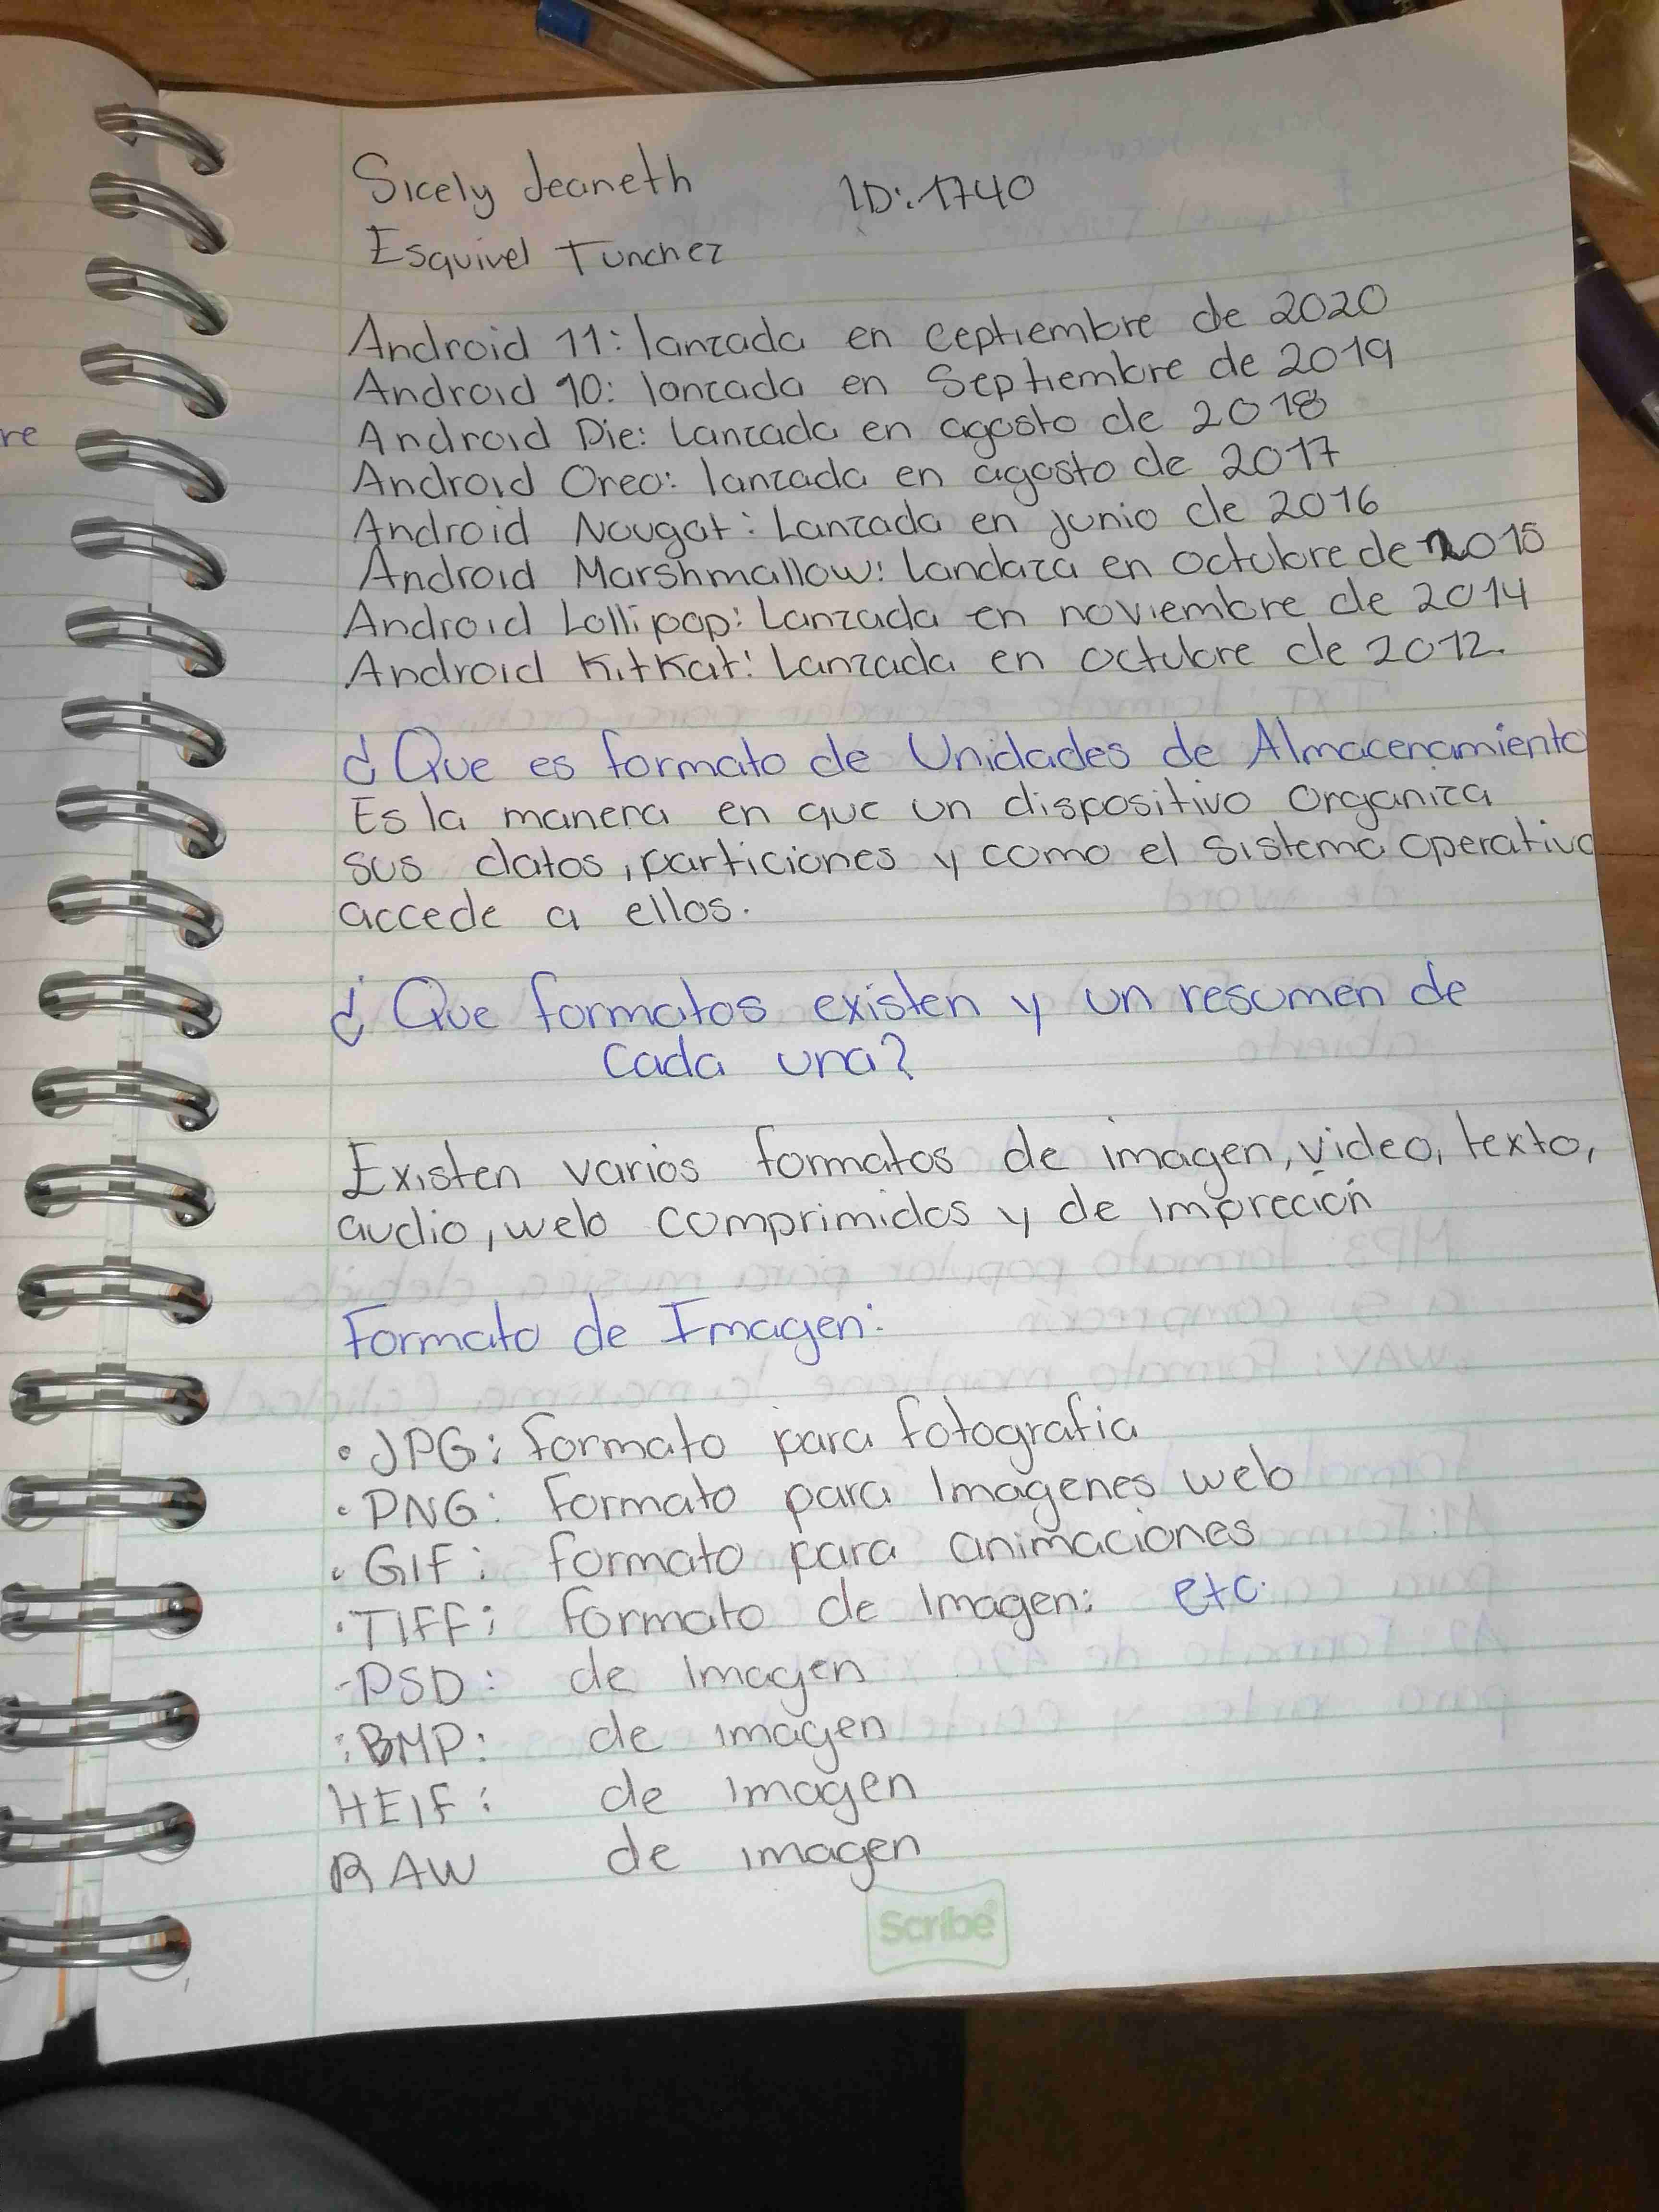 Sicely Jeaneth ID: 1740
Esquivel Tunchez
Android 11: lanzada en ceptiembre de 2020
Android 10: lanzada en Septiembre de 2019
Android Pie: Lanzada en agosto de 2018
Android Oreo: lanzada en agosto de 2017
Android Nougat: Lanzada en junio de 2016
Android Marshmallow: Landaza en octubre de 2015
Android Lollipop: Lanzada en noviembre de 2014
Android KitKat: Lanzada en octubre de 2012.
¿Que es formato de Unidades de Almacenamiento
Es la manera en que un dispositivo organiza
sus datos, particiones y como el sistema operativo
accede a ellos.
re
¿Que formatos existen y un resumen de
cada una?
Existen varios formatos de imagen, video, texto,
audio, web comprimidos y de impreción
Formato de Imagen:
• JPG: formato para fotografia
• PNG: formato para Imagenes web
• GIF: formato para animaciones
• TIFF: formato de Imagen: etc.
-PSD: de Imagen
:BMP: de imagen
HEIF: de Imagen
RAW de imagen
Scribe